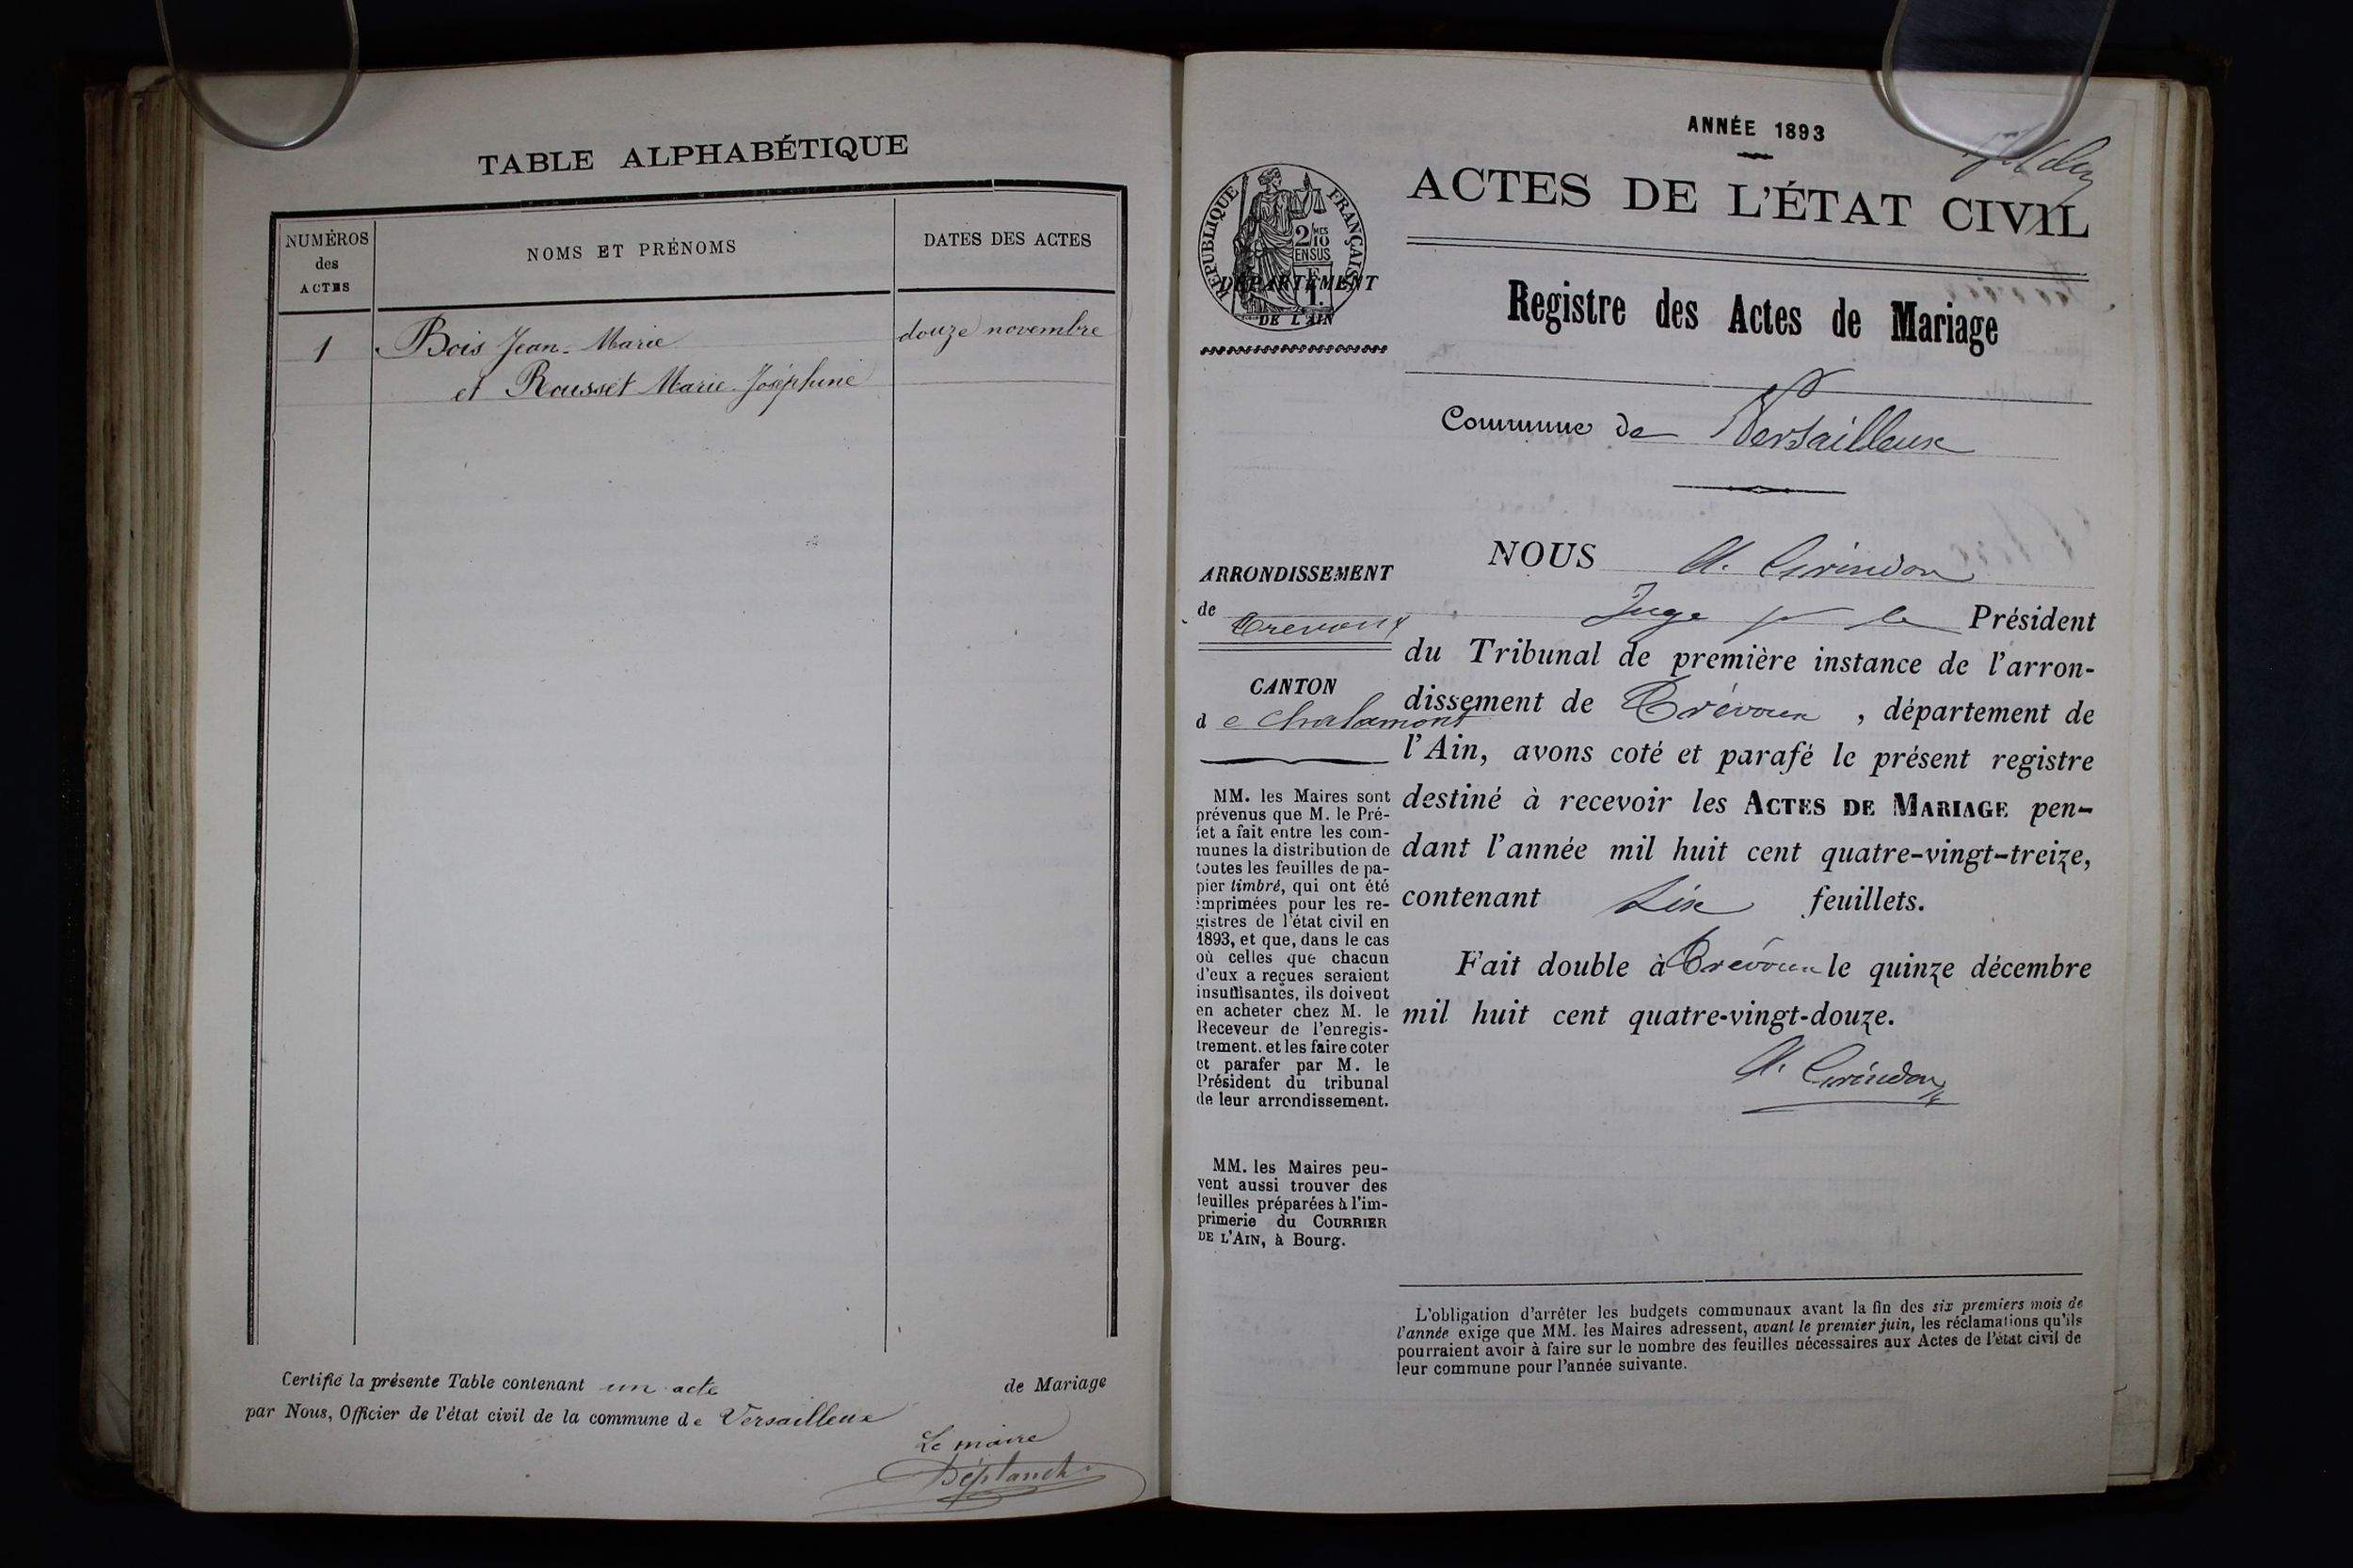 TABLE ALPHABÉTIQUE
NUMÉROS
des
ACTES
NOMS ET PRÉNOMS
DATES DES ACTES
1
Bois Jean-Marie
douze novembre
et Rousset Marie-Joséphine
Certifié la présente Table contenant un acte de Mariage
par Nous, Officier de l'état civil de la commune de Versailleux
Le maire
ANNÉE 1893
ACTES DE L'ÉTAT CIVIL
RÉPUBLIQUE FRANÇAISE
2/10MES
EN SUS
DÉPARTEMENT
DE L'AIN
Registre des Actes de Mariage
Commune de Versailleux
ARRONDISSEMENT
de Trévoux
CANTON
de Chalamont
MM. les Maires sont
prévenus que M. le Pré-
fet a fait entre les com-
munes la distribution de
toutes les feuilles de pa-
pier timbré, qui ont été
imprimées pour les re-
gistres de l'état civil en
1893, et que, dans le cas
où celles que chacun
d'eux a reçues seraient
insuffisantes, ils doivent
en acheter chez M. le
Receveur de l'enregis-
trement. et les faire coter
et parafer par M. le
Président du tribunal
de leur arrondissement.
MM. les Maires peu-
vent aussi trouver des
feuilles préparées à l'im-
primerie du COURRIER
DE L'AIN, à Bourg.
NOUS A. Girindon
Juge pr le Président
du Tribunal de première instance de l'arron-
dissement de Trévoux , département de
l'Ain, avons coté et parafé le présent registre
destiné à recevoir les ACTES DE MARIAGE pen-
dant l'année mil huit cent quatre-vingt-treize,
contenant Six feuillets.
Fait double à Trévoux le quinze décembre
mil huit cent quatre-vingt-douze.
A. Girindon
L'obligation d'arrêter les budgets communaux avant la fin des six premiers mois de
l'année exige que MM. les Maires adressent, avant le premier juin, les réclamations qu'ils
pourraient avoir à faire sur le nombre des feuilles nécessaires aux Actes de l'état civil de
leur commune pour l'année suivante.